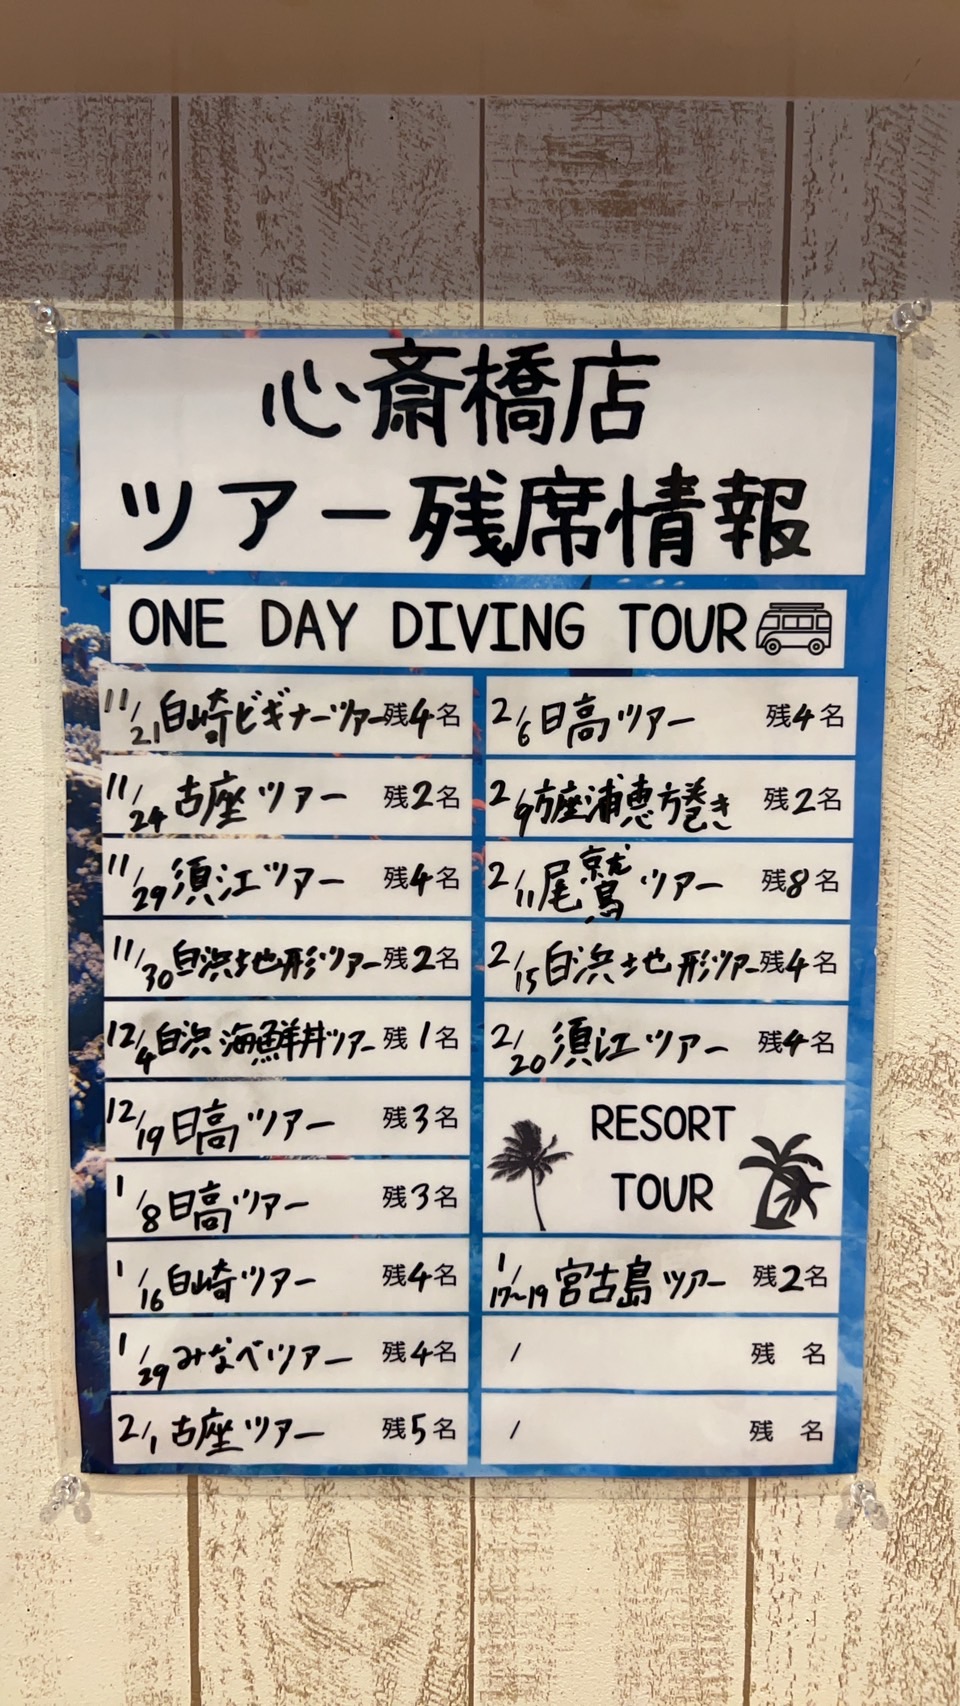 心斎橋店
ツアー残席情報
ONE DAY DIVING TOUR
11/21 白崎ビギナーツアー 残4名
11/24 古座ツアー 残2名
11/29 須江ツアー 残4名
11/30 白浜地形ツアー 残2名
12/4 白浜海鮮丼ツアー 残1名
12/19 日高ツアー 残3名
1/8 日高ツアー 残3名
1/16 白崎ツアー 残4名
1/29 みなべツアー 残4名
2/1 古座ツアー 残5名
2/6 日高ツアー 残4名
2/9 方座浦恵方巻き 残2名
2/11 尾鷲ツアー 残8名
2/15 白浜地形ツアー 残4名
2/20 須江ツアー 残4名
RESORT
TOUR
1/17~19 宮古島ツアー 残2名
/ 残 名
/ 残 名